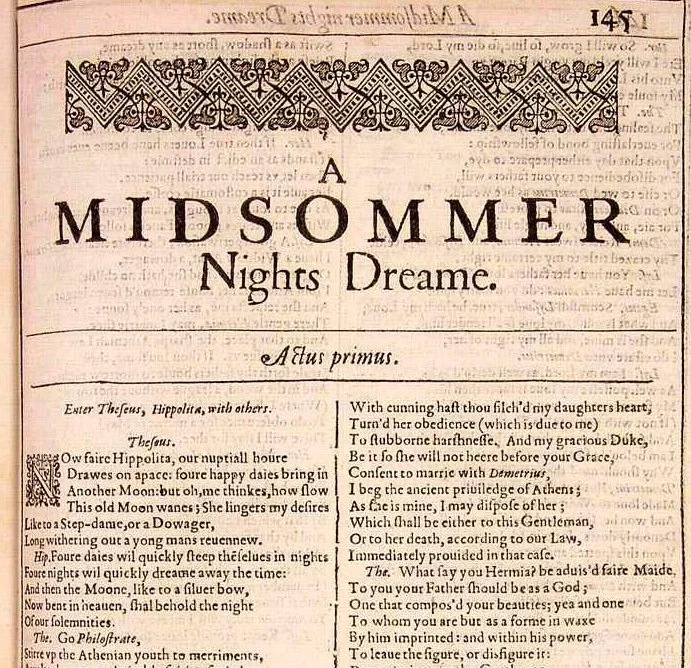 145
A
MIDSOMMER
Nights Dreame.
Actus primus.
Enter Theſeus, Hippolita, with others.
Theſeus.
NOw faire Hippolita, our nuptiall houre
Drawes on apace: foure happy daies bring in
Another Moon: but oh, me thinkes, how ſlow
This old Moon wanes; She lingers my deſires
Like to a Step-dame, or a Dowager,
Long withering out a yong mans reuennew.
Hip. Foure daies wil quickly ſteep thẽſelues in nights
Foure nights wil quickly dreame away the time:
And then the Moone, like to a ſiluer bow,
Now bent in heauen, ſhal behold the night
Of our ſolemnities.
The. Go Philoſtrate,
Stirre vp the Athenian youth to merriments,
With cunning haſt thou filch'd my daughters heart,
Turn'd her obedience (which is due to me)
To ſtubborne harſhneſſe. And my gracious Duke,
Be it ſo ſhe will not heere before your Grace,
Conſent to marrie with Demetrius,
I beg the ancient priuiledge of Athens;
As ſhe is mine, I may diſpoſe of her;
Which ſhall be either to this Gentleman,
Or to her death, according to our Law,
Immediately prouided in that caſe.
The. What ſay you Hermia? be aduis'd faire Maide,
To you your Father ſhould be as a God;
One that compos'd your beauties; yea and one
To whom you are but as a forme in waxe
By him imprinted: and within his power,
To leaue the figure, or disfigure it: